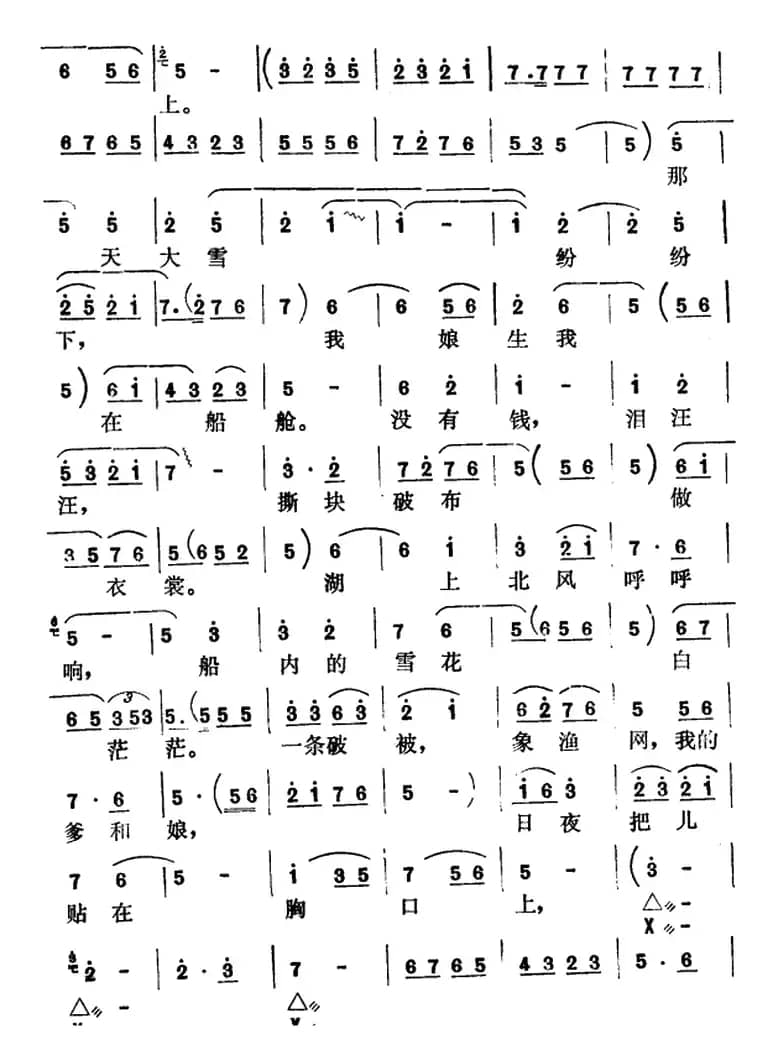 6 5 6 | 5 - | ( 3 2 3 5 | 2 3 2 1 | 7 . 7 7 7 | 7 7 7 7 |
上。
6 7 6 5 | 4 3 2 3 | 5 5 5 6 | 7 2 7 6 | 5 3 5 5 | 5 ) 5 |
那
5 5 | 2 5 | 2 1 | 1 - | 1 2 | 2 5 |
天 大 雪 纷 纷
2 5 2 1 | 7 . ( 2 7 6 | 7 ) 6 | 6 5 6 | 2 6 | 5 ( 5 6 |
下, 我 娘 生 我
5 ) 6 1 | 4 3 2 3 | 5 - | 6 2 | 1 - | 1 2 |
在 船 舱。 没 有 钱, 泪 汪
5 3 2 1 | 7 - | 3 . 2 | 7 2 7 6 | 5 ( 5 6 | 5 ) 6 1 |
汪, 撕 块 破 布 做
3 5 7 6 | 5 ( 6 5 2 | 5 ) 6 | 6 1 | 3 2 1 | 7 . 6 |
衣 裳。 湖 上 北 风 呼 呼
5 - | 5 3 | 3 2 | 7 6 | 5 ( 6 5 6 | 5 ) 6 7 |
响, 船 内 的 雪 花 白
6 5 3 5 3 | 5 . ( 5 5 5 | 3 3 6 3 | 2 1 | 6 2 7 6 | 5 5 6 |
茫 茫。 一 条 破 被, 象 渔 网, 我 的
7 . 6 | 5 . ( 5 6 | 2 1 7 6 | 5 - ) | 1 6 3 | 2 3 2 1 |
爹 和 娘, 日 夜 把 儿
7 6 | 5 - | 1 3 5 | 7 5 6 | 5 - | ( 3 - |
贴 在 胸 口 上, △ -
X -
2 - | 2 . 3 | 7 - | 6 7 6 5 | 4 3 2 3 | 5 . 6 |
△ - △
X - X -